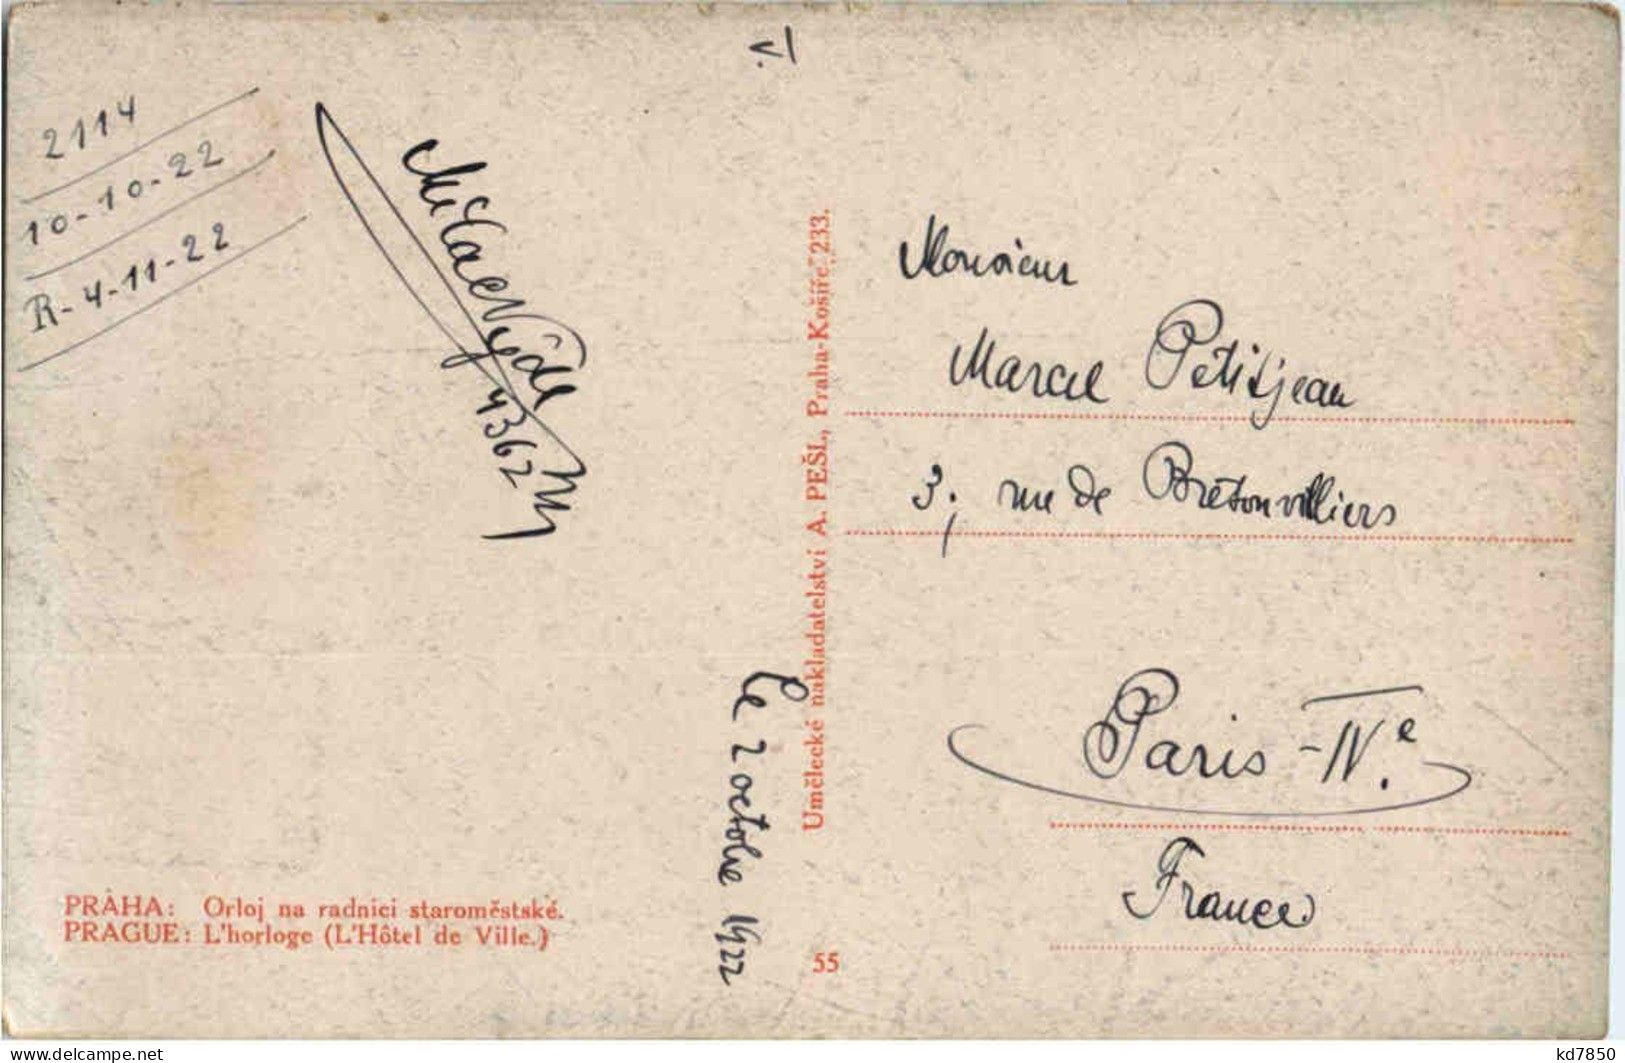 2114
10-10-22
R-4-11-22
4362
V.
Le 2 octobre 1922
PRAHA: Orloj na radnici staroměstské.
PRAGUE: L'horloge (L'Hôtel de Ville.)
Umělecké nakladatelství A. PEŠL, Praha-Košíře 233.
55
Monsieur
Marcel Petitjean
3, rue de Bretonvilliers
Paris-IVe.
France
kd7850
delcampe.net